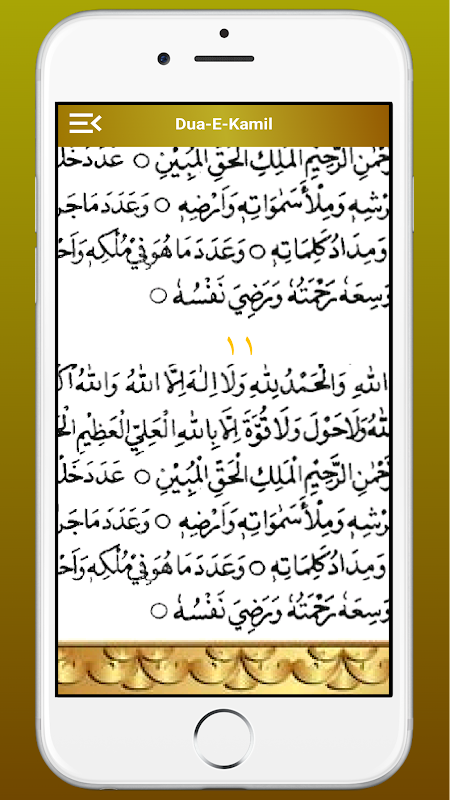 Dua-E-Kamil
الرَّحِيْمِ الْمَلِكِ الْحَقِّ الْمُبِيْنِ ○ عَدَدَ
وَمِلْأَ سَمٰوَاتِهٖ وَاَرْضِهٖ ○ وَعَدَدَ مَا
وَمِدَادُ كَلِمَاتِهٖ ○ وَعَدَدَ مَا هُوَ فِيْ مُلْكِهٖ
وَسِعَهٗ رَحْمَتُهٗ وَرَضِيَ نَفْسُهٗ ○
١١
اللهِ وَالْحَمْدُ لِلّٰهِ وَلَا اِلٰهَ اِلَّا اللهُ وَاللهُ
وَلَا حَوْلَ وَلَا قُوَّةَ اِلَّا بِاللهِ الْعَلِيِّ الْعَظِيْمِ
الرَّحِيْمِ الْمَلِكِ الْحَقِّ الْمُبِيْنِ ○ عَدَدَ
وَمِلْأَ سَمٰوَاتِهٖ وَاَرْضِهٖ ○ وَعَدَدَ مَا
وَمِدَادُ كَلِمَاتِهٖ ○ وَعَدَدَ مَا هُوَ فِيْ مُلْكِهٖ
وَسِعَهٗ رَحْمَتُهٗ وَرَضِيَ نَفْسُهٗ ○